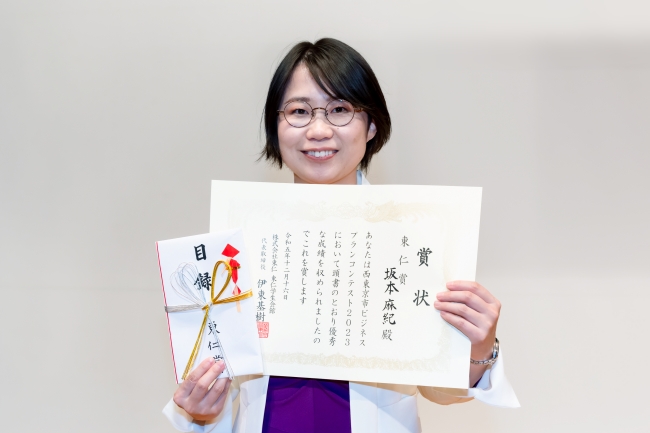 賞状
東仁賞
坂本麻紀 殿
あなたは西東京市ビジネス
プランコンテスト2023
において頭書のとおり優秀
な成績を収められましたの
でこれを賞します
令和五年十二月十六日
株式会社東仁 東仁学生会館
代表取締役 伊東基樹
目録
東仁賞